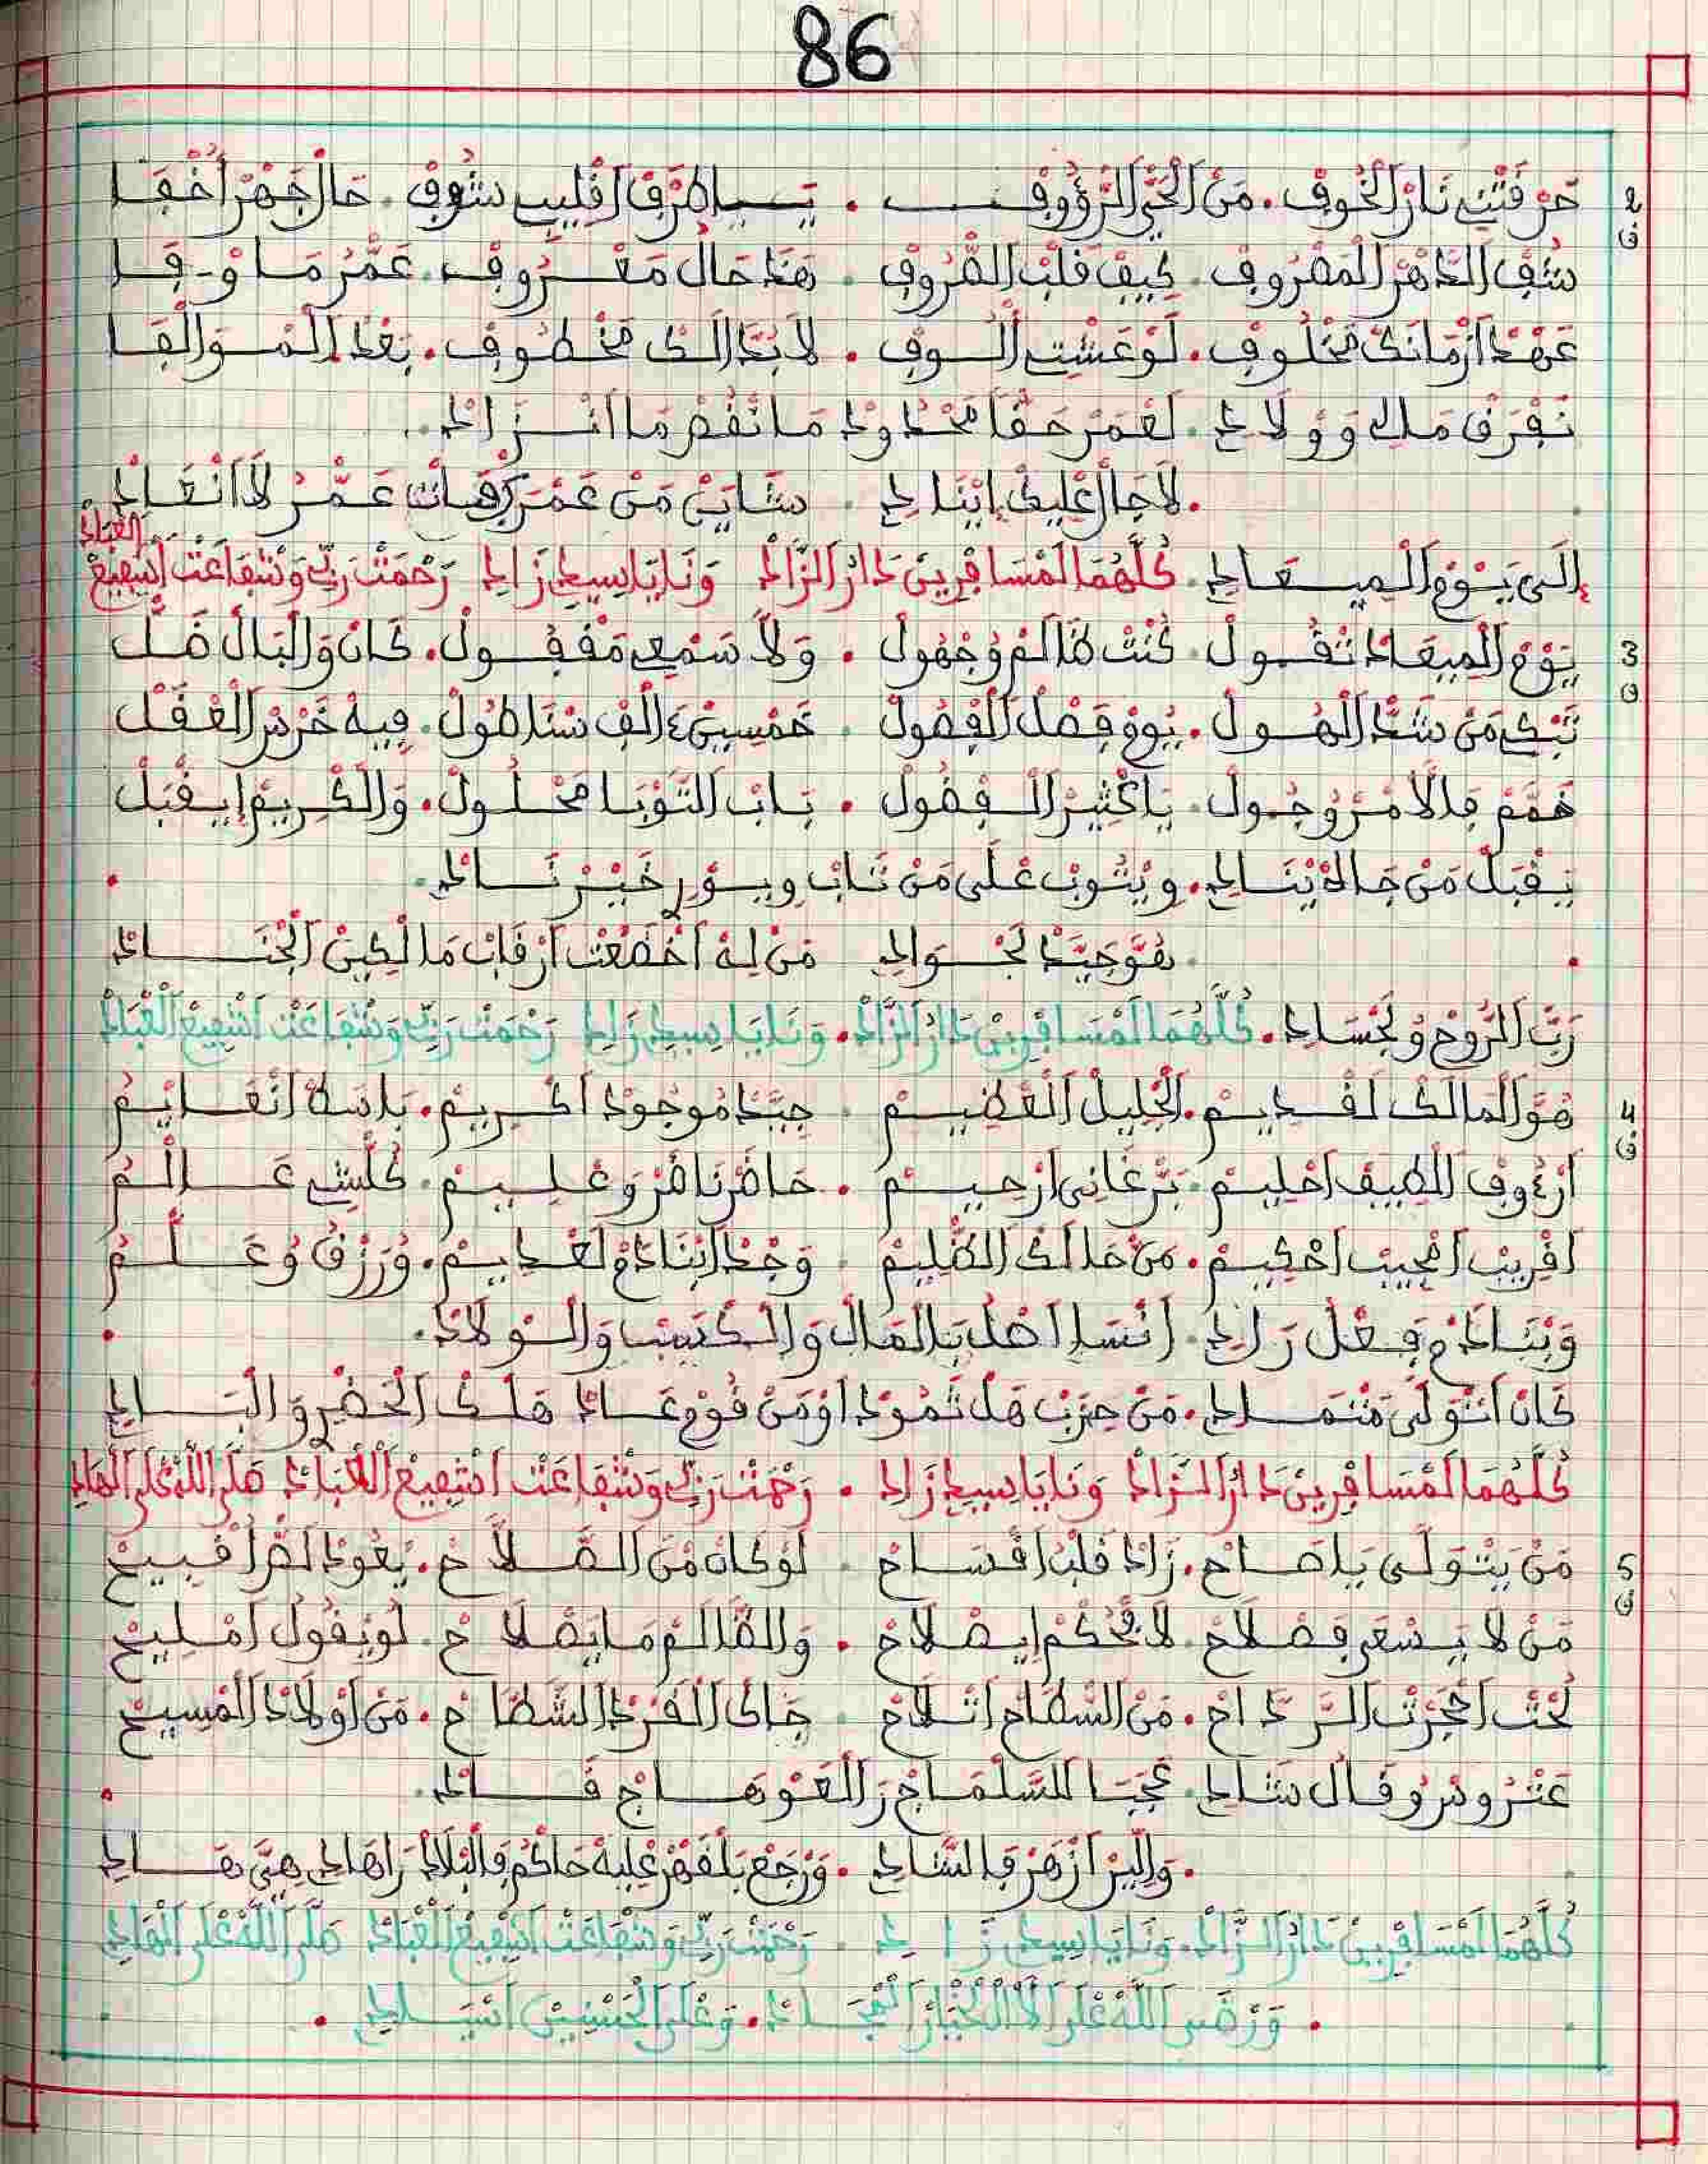 86
2 ف حَرْقَتْنِي نَارْ الْخُوفْ. مَنْ الْحَيّ الرَّؤُوفْ . يَا طَرْفْ اقْلِيبِي شُوفْ. حَالْ جَهْرْ أَخْفَا
شُفْ الدَّهْرْ الْمَصْرُوفْ. كِيفْ قَلْبْ الصّْرُوفْ . هَدَ حَالْ مَعْرُوفْ. عَمّْرُ مَا وْفَا
عَهْدْ ازْمَانَكْ مَخْلُوفْ. لَوْ عَشْتِ أُلُوفْ . لَابُدَّ الَكْ مَخْطُوفْ. بَعْدْ الْمُوَالْفَا
تَفْرَقْ مَالِي وَوْلَادِي. لَعْمَرْ حَقًّا مَحْدُودْ مَا نْقُصْ مَا انْزَادْ
لَاجَالْ عْلِيكْ اِيْنَادِي . شَايَنْ مَنْ عَمّْرَكْ فَاتْ عَمّْرُ لَا انْعَادْ
إِلَى يَوْمْ الْمِيعَادِ. كُلّْهُمَا لَمْسَافْرِينْ دَارْ الزَّادْ وَنَايَا سِيدِي زَادِي رَحْمَتْ رَبِّي وَشْفَاعَتْ اشْفِيعْ الْعْبَادْ
3 ف يَوْمْ الْمِيعَادْ تْقُولْ. كُنْتْ ظَالَمْ وُجْهُولْ . وَلَا سَمْعِي مَقْفُولْ. كَانْ وَالْبَالْ ضَلّْ
تَبْكِي مَنْ شَدَّ الْهُولْ. يُومْ فَصْلْ الْفْصُولْ . خَمْسِينْ ءَالْفْ سْنَا طُولْ. فِيهْ خَرْسْ الْعْقَلْ
خَمَّمْ فَالَامْرْ وُجُولْ. يَا كْثِيرْ الْفْضُولْ . بَابْ التَّوْبَا مَحْلُولْ. وَالْكْرِيمْ إِيقْبَلْ
يَقْبَلْ مَنْ جَالُه يْنَادِي. وِيْتُوبْ عْلَى مَنْ تَابْ وِيوَرِّي خَيْرْ نَادْ.
هُوَّ جَيَّدْ لَجْوَادِ مَنْ لِهْ اخْضَعْتْ ارْقَابْ مَالْكِينْ الْجْنَادْ
رَبّْ الرُّوحْ وُلَجْسَادِ. كُلّْهُمَا لَمْسَافْرِينْ دَارْ الزَّادْ. وَنَايَا سِيدِي زَادِي رَحْمَتْ رَبِّي وَشْفَاعَتْ اشْفِيعْ الْعْبَادْ
4 ف هُوَّ الْمَالَكْ لَقْدِيمْ. الْجْلِيلْ الْعْظِيمْ . جَيَّدْ مُوجُودْ اكْرِيمْ. بَاسَطْ انْعَايْمُ
ارْءُوفْ الْطِيفْ احْلِيمْ. بَرّْ غَانِي ارْحِيمْ . حَاضْرْ نَاضْرْ وَعْلِيمْ. كُلّْشِي عَالْمُ
اقْرِيبْ امْجِيبْ احْكِيمْ. مَنْ حَدَاكْ الظّْلِيمْ . وَجْدْ ابْنَادَمْ لَعْدِيمْ. وُرَزْقُ وُعَلّْمُ
وَبْنَادَمْ فِعْلْ رَادِي. انْسَا اصْلُ بَالْمَالْ وَالْكَسْبْ وَالْوْلَادْ.
كَانْ اتْوَلَّى مَتْمَادِي. مَنْ حِزْبْ هَلْ ثَمُودْ اوْ مَنْ قُومْ عَادْ هَلْكْ الْحَضْرِ وَالْبَادِي
كُلّْهُمَا لَمْسَافْرِينْ دَارْ الزَّادْ وَنَايَا سِيدِي زَادِي . رَحْمَتْ رَبِّي وَشْفَاعَتْ اشْفِيعْ الْعْبَادْ صَلَّى اللَّهْ عْلَى الْهَادِي
5 ف مَنْ يَتْوَلَّى يَاصَاحْ. زَادْ قَلْبُ اقْسَاحْ . لَوْ كَانْ مْنْ الصّْلَاحْ. يْعُودْ لَصْرْ اقْبِيحْ
مَنْ لَا يَسْعَى فَصْلَاحْ. لَا فْحُكْمْ اِيصْلَاحْ . وَالظَّالَمْ مَا يَصْلَاحْ. لُو يْقُولْ امْلِيحْ
تَحْتْ اجْرَتْ الرَّدَاحْ. مَنْ السّْطَاحْ اتْلَاحْ . جَاكْ الْقَرْدْ الشّْطَّاحْ. مَنْ اوْلَادْ الْمْسِيحْ
عَتْرُوسُ وُقَالْ شَادِي. عَجْبَا لَلسَّلْمَاجْ زَالْعَوْ هَاجْ قَادْ.
وَالِّيزْ ازْهَرْ فَالشَّادِي. وَرْجَعْ بَلْقَهْرْ عْلِيهْ حَاكْمْ فَالْبْلَادْ رَاهَادِي هِيَّ هَادِي
كُلّْهُمَا لَمْسَافْرِينْ دَارْ الزَّادْ. وَنَايَا سِيدِي زَادِي . رَحْمَتْ رَبِّي وَشْفَاعَتْ اشْفِيعْ الْعْبَادْ صَلَّى اللَّهْ عْلَى الْهَادِي
. وَرْضَى اللَّهْ عْلَى الَالْ الْخْيَارْ الْمْجَادْ. وَعْلَى الْحَسْنِينْ اسْيَادِي .